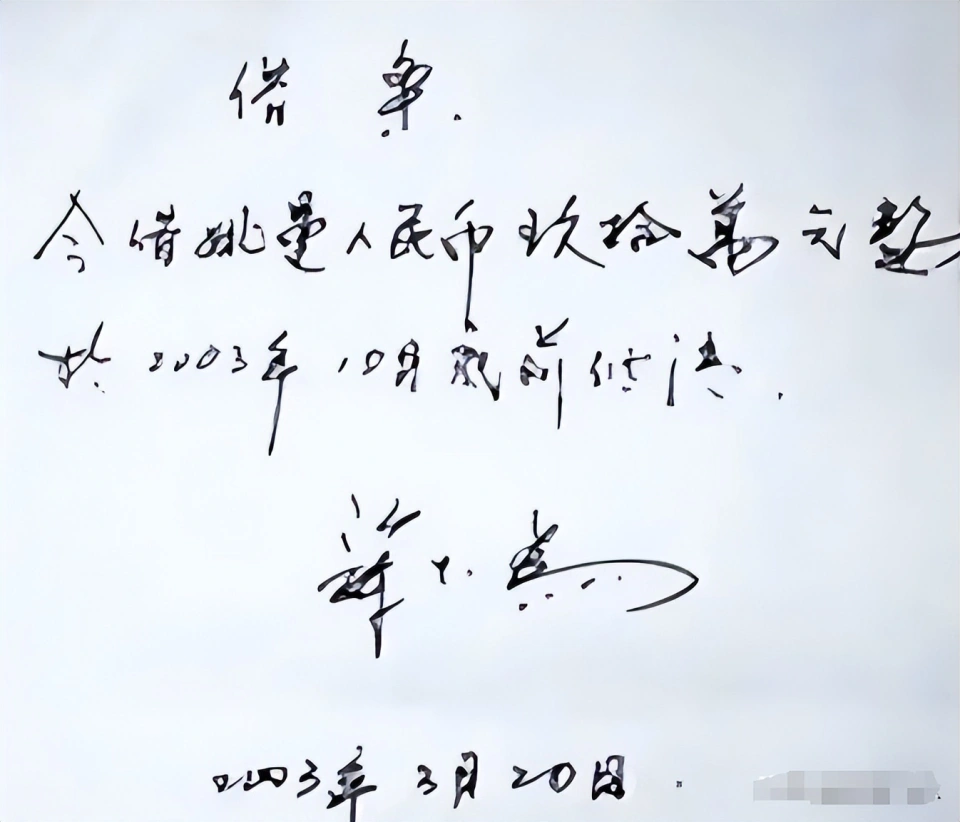 借条.
今借姚曼人民币玖拾萬元整
于2003年10月底前付清.
薛
2003年3月20日.